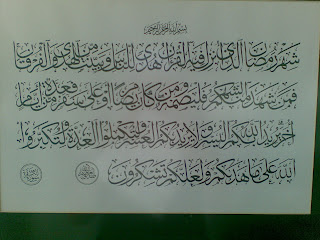 بسم الله الرحمن الرحيم
شهر رمضان الذي انزل فيه القران هدى للناس وبينت من الهدى والفرقان
فمن شهد منكم الشهر فليصمه ومن كان مريضا او على سفر فعدة من ايام
اخر يريد الله بكم اليسر ولا يريد بكم العسر ولتكملوا العدة ولتكبروا
الله على ما هدىكم ولعلكم تشكرون